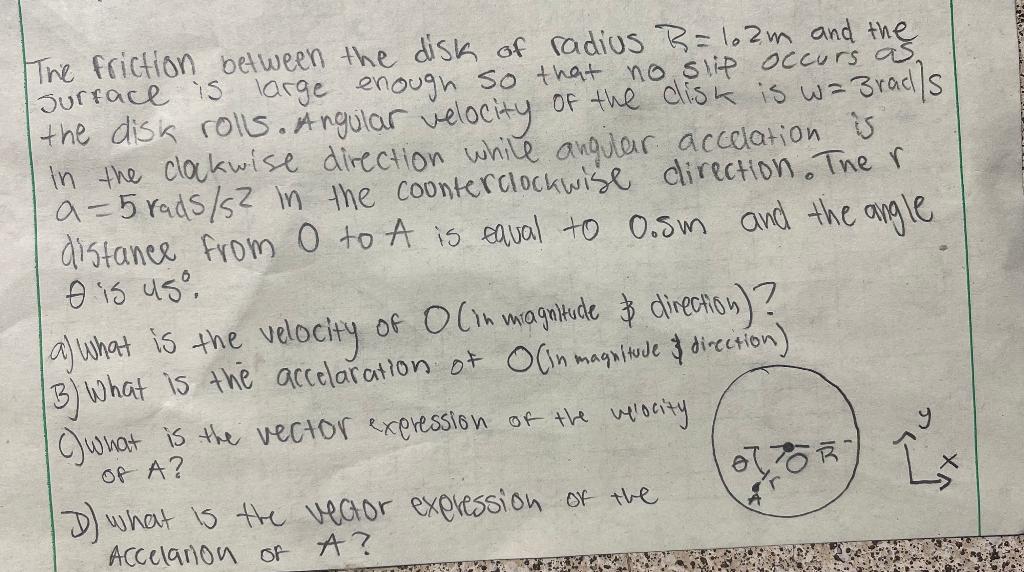 The friction between the disk of radius R=1.2m and the
surface is large enough so that no slip occurs as
the disk rolls. Angular velocity of the disk is w=3rad/s
in the clockwise direction while angular accelation is
a=5 rads/s² in the coonterclockwise direction. The r
distance from O to A is equal to 0.5m and the angle
θ is 45°.
a) What is the velocity of O (in magnitude & direction)?
B) What is the accelaration of O (in magnitude & direction)
C) what is the vector expression of the velocity
of A?
D) what is the vector expression of the
Accelarion of A?
θ O R
r
A
y
x